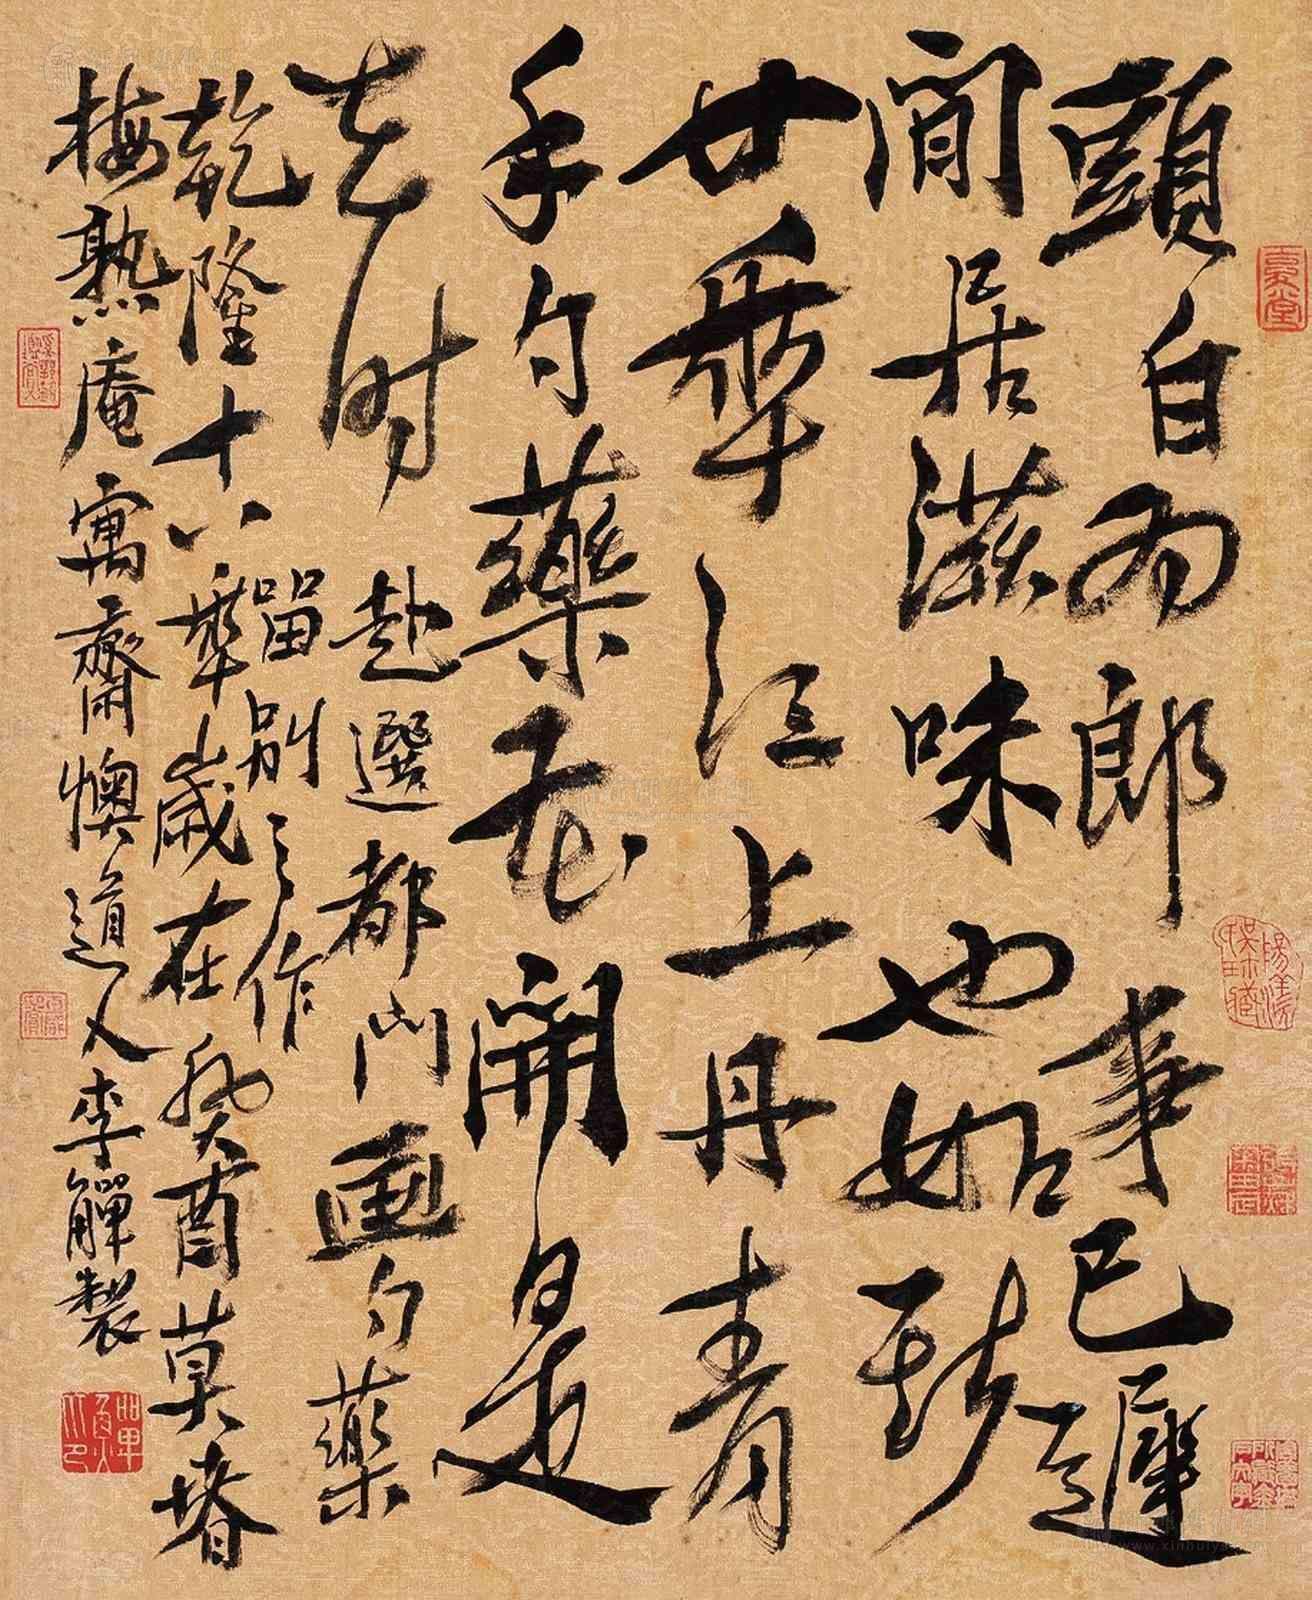 頭白為郎事已遲
閒居滋味也如斯
廿年江上丹青
手勺藥花開是
去時
赴選都門画勺藥
留別之作
乾隆十八年歲在癸酉莫春
梅熟庵寓齋懊道人李鱓製
www.xinhuiys.com